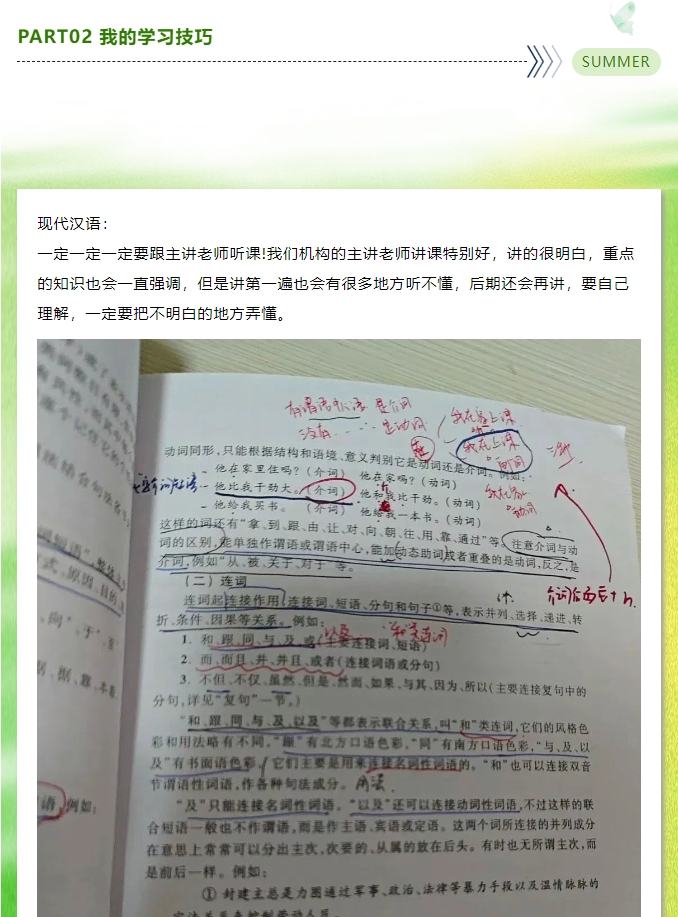 PART02 我的学习技巧
SUMMER
现代汉语：
一定一定一定要跟主讲老师听课!我们机构的主讲老师讲课特别好，讲的很明白，重点
的知识也会一直强调，但是讲第一遍也会有很多地方听不懂，后期还会再讲，要自己
理解，一定要把不明白的地方弄懂。
我在上课
动词同形,只能根据结构和语境、意义判别它是动词还是介词。例如:
他在家里住吗?(介词) 他在家吗?(动词)
他比我干劲大。(介词) 他和我比干劲。(动词)
他给我买书。(介词) 他给我一本书。(动词)
这样的词还有“拿、到、跟、由、让、对、向、朝、往、用、靠、通过”等。注意介词与动
词的区别,能单独作谓语或谓语中心,能加动态助词或者重叠的是动词,反之,是
介词,例如“从、被、关于、对于”等。
(二)连词
连词起连接作用(连接词、短语、分句和句子①等,表示并列、选择、递进、转
折、条件、因果等关系。例如:
1. 和、跟、同、与、及、或(主要连接词、短语)
2. 而、而且、并、并且、或者(连接词语或分句)
3. 不但、不仅、虽然、但是、然而、如果、与其、因为、所以(主要连接复句中的
分句,详见“复句”一节。)
“和、跟、同、与、及、以及”等都表示联合关系,叫“和”类连词,它们的风格色
彩和用法略有不同。“跟”有北方口语色彩,“同”有南方口语色彩,“与、及、以
及”有书面语色彩,它们主要是用来连接名词性词语的。“和”也可以连接双音
节谓语性词语,作各种句法成分。
“及”只能连接名词性词语。“以及”还可以连接动词性词语,不过这样的联
合短语一般也不作谓语,而是作主语、宾语或定语。这两个词所连接的并列成分
在意思上常常可以分出主次,次要的、从属的放在后头。有时也无所谓主次,而
是前后一样。例如:
① 封建主总是力图通过军事、政治、法律等暴力手段以及温情脉脉的